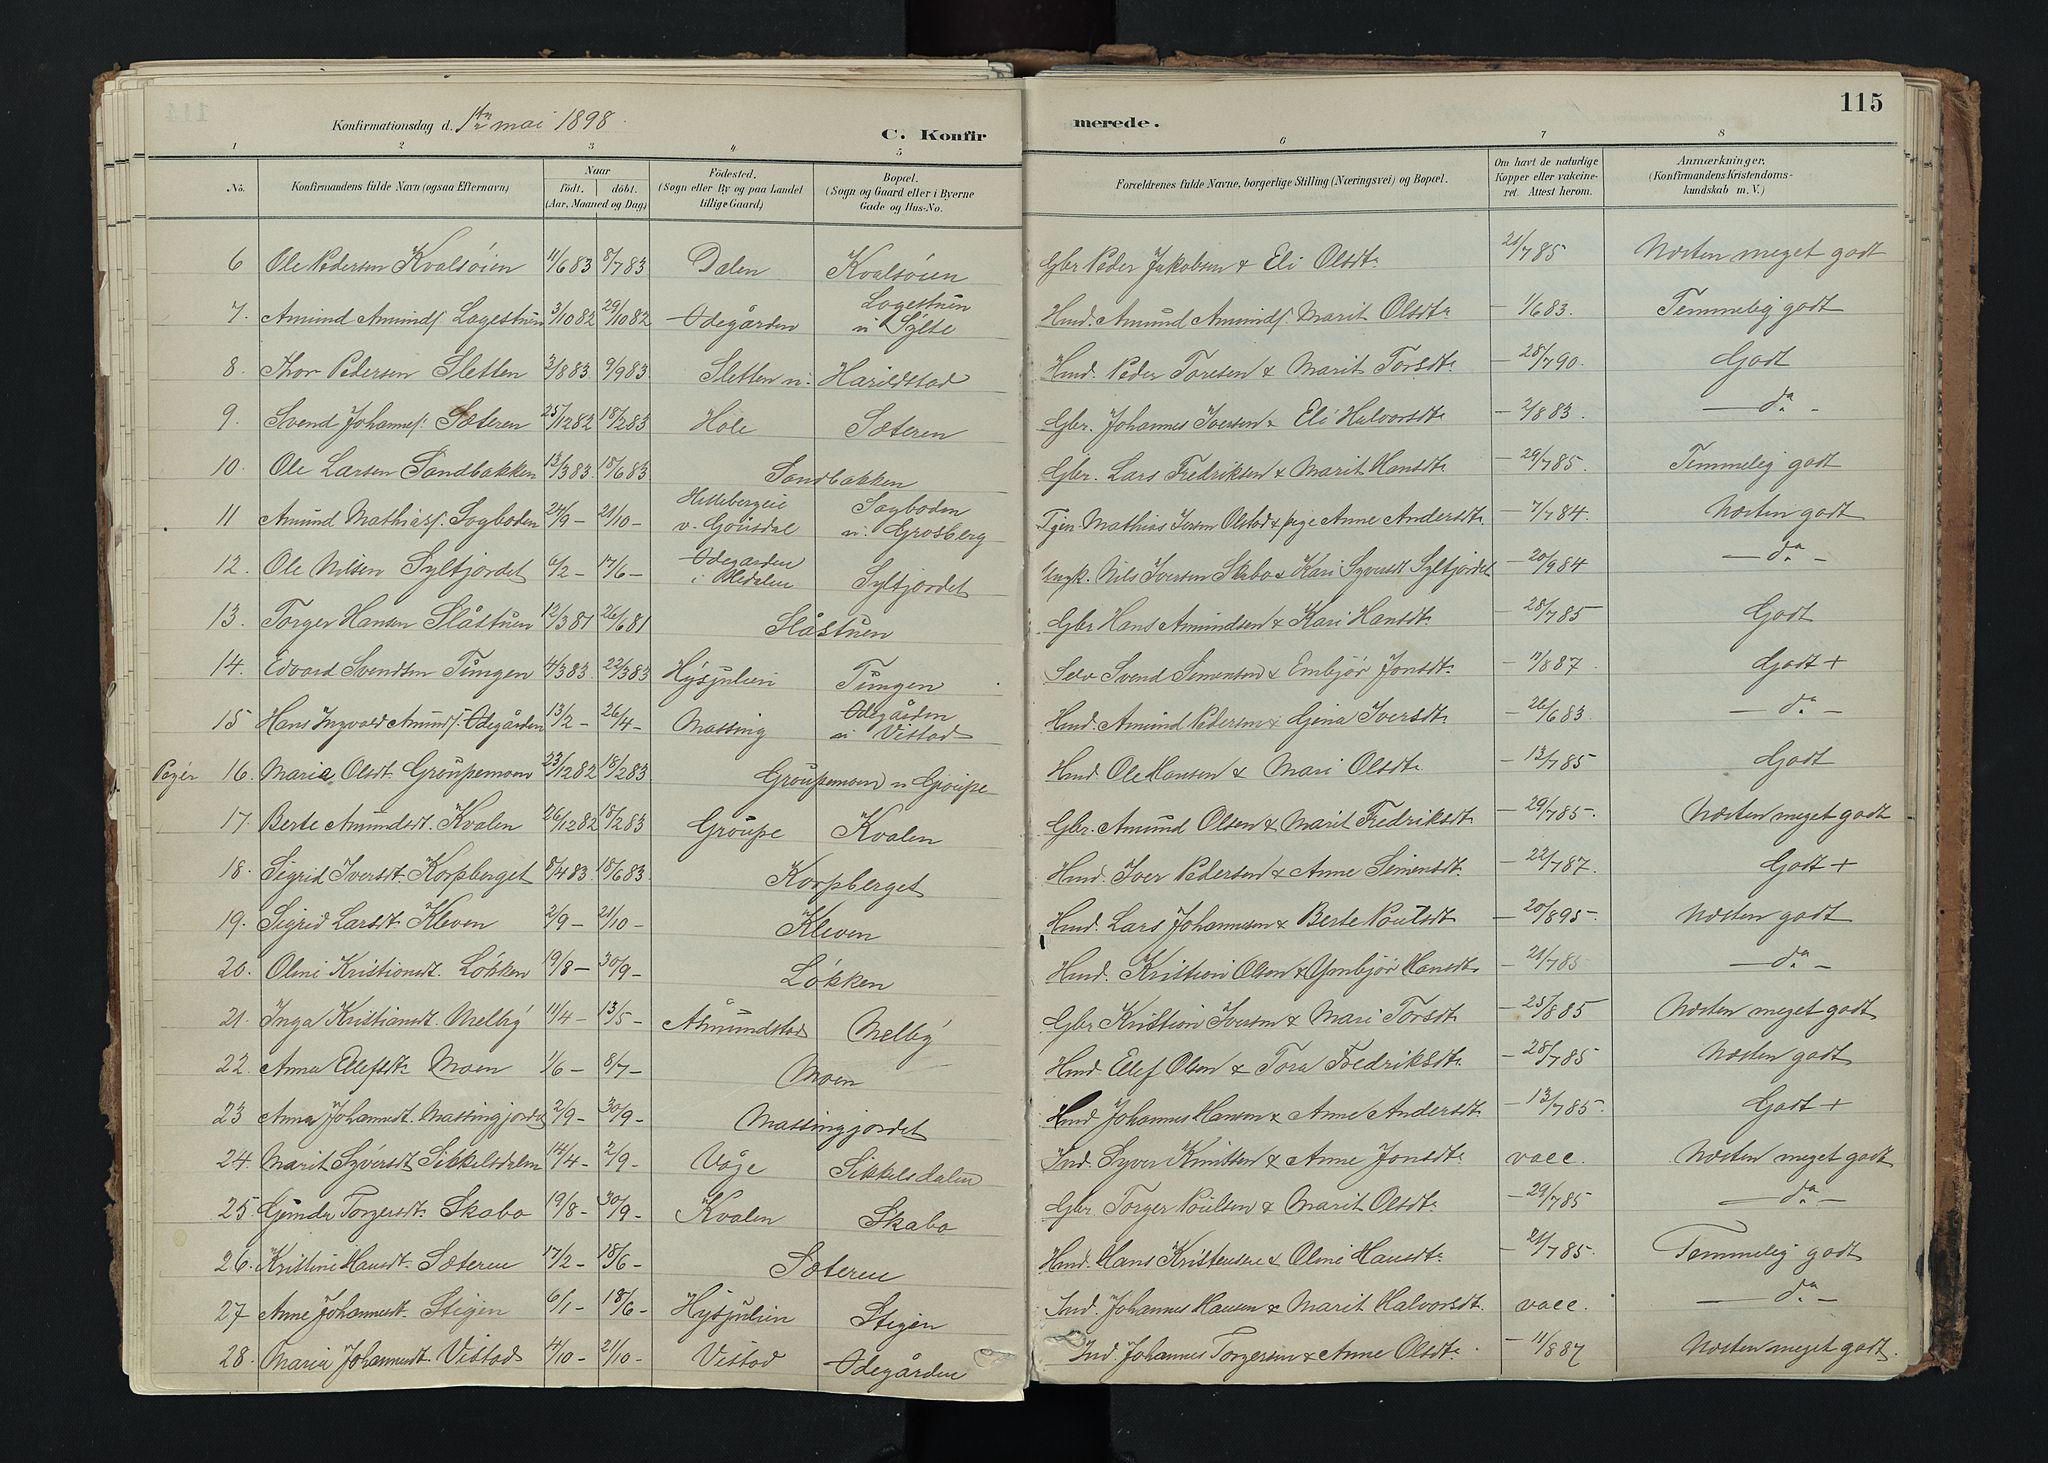 115
Konfirmationsdag d. 1ste mai 1898.
C. Konfirmerede.
1 2 3 4 5 6 7 8
No. Konfirmandens fulde Navn (ogsaa Efternavn) Naar født. døbt. (Aar, Maaned og Dag) Fødested. (Sogn eller By og paa Landet tillige Gaard) Bopæl. (Sogn og Gaard eller i Byerne Gade og Hus-No. Forældrenes fulde Navne, borgerlige Stilling (Næringsvei) og Bopæl. Om havt de naturlige Kopper eller vakcineret. Attest herom. Anmærkninger, (Konfirmandens Kristendomskundskab m. V.)
6 Ole Pedersen Kvalsøien 11/6 83 8/7 83 Dalen Kvalsøien Gbr Peder Jakobsen & Eli Olsdt. 21/7 85 Næsten meget godt
7. Amund Amunds. Lagestuen 3/10 82 29/10 82 Ødegården Lagestuen u Sylte Hmd. Amund Amunds. Marit Olsdt. – 1/6 83. Temmelig godt
8. Thor Pedersen Sletten 2/8 83. 9/9 83. Sletten u. Harildstad Hmd. Peder Toresen & Marit Torsdt. – 28/7 90. Godt
9. Svend Johannes. Sæteren 25/12 82 18/2 83 Hole Sæteren Gbr. Johannes Iversen & Eli Halvorsdt. – 2/8 83. – da. –
10. Ole Larsen Sandbakken 13/3 83. 18/6 83 Sandbakken Gbr. Lars Fredriksen & Marit Hansdt. – 29/7 85. Temmelig godt
11 Amund Mathias. Sagboden 24/9 – 21/10 – v. Gousdal Sagboden u. Grosberg Mathias Olstad & pige Anne Andersdt. – 7/7 84. Næsten godt
12. Ole Nilsen Syltjordet 6/2 – 17/6 – Ødegården i Syltjordet Ungk. Nils Iversen Skabo & Kari Syversdt Syltjordet – 20/9 84 – da. –
13. Torger Hansen Slåstuen 12/3 81 26/6 81 Slåstuen Gbr Hans Amundsen & Kari Hansdt. – 28/7 85 Godt
14. Edvard Svendsen Tungen 4/3 83. 22/3 83 Høsjulien Tungen Selv Svend Simensen & Embjør Jonsdt. – 11/8 87. Godt +
15 Hans Ingvald Amunds. Ødegården 13/2 – 26/4 – Massing Ødegården u Vistad Hmd. Amund Pedersen & Gina Iversdt. – 26/6 83. – da. –
16. Maria Olsdt. Groupemoen 23/12 82 18/2 83 Groupemoen u Groupe Hmd. Ole Hansen & Mari Olsdt. – 13/7 85 Godt
17. Berte Amundsdt. Kvalen 26/12 82 18/2 83 Groupe Kvalen Gbr. Amund Olsen & Marit Fredriksdt. – 29/7 85. Næsten meget godt
18. Sigrid Iversdt. Korpberget 8/4 83. 18/6 83 Korpberget Hmd. Iver Pedersen & Anne Simensdt. – 22/7 87. Godt +
19. Sigrid Larsdt. Kleven 2/9 – 21/10 – Kleven Hmd. Lars Johannesen & Berte Poulsdt. – 20/8 95. Næsten godt
20. Oline Kristiansdt. Løkken 19/8 – 30/9 – Løkken Hmd. Kristian Olsen & Ymbjør Hansdt. – 21/7 85 – da. –
21. Inga Kristiansdt. Melby 11/4 – 13/5 – Åmundstad Melby Gbr Kristian Iversen & Mari Torsdt. – 25/8 85 Næsten meget godt
22. Anne Elefsdt. Moen 1/6 – 8/7 – Moen Hmd. Elef Olsen & Tora Fredriksdt. – 28/7 85. Næsten godt
23 Anna Johannesdt. Massingjordet 2/9 – 30/9 – Massingjordet Hmd Johannes Hansen & Anne Andersdt. – 13/7 85. Godt +
24. Marit Syversdt. Sikkelsdalen 14/4 – 2/9 – Våge Sikkelsdalen Ind. Syver Knutsen & Anne Jonsdt. vacc. Næsten meget godt
25. Torgersdt. Skabo 19/8 – 30/9 – Kvalen Skabo Gbr Torger Poulsen & Marit Olsdt. – 29/7 85. – da. –
26. Kristine Hansdt. Sæteren 17/2 – 18/6 – Sæteren Hmd. Hans Kristensen & Oline Hansdt. – 21/7 85. Temmelig godt
27 Anne Johannesdt. Stigen 6/1 – 18/6 – Høsjulien Stigen Ind. Johannes Hansen & Marit Halvorsdt. vacc. – da. –
28. Maria Johannesdt. Vistad 4/10 – 21/10 – Vistad Ødegården Ind. Johannes Torgersen & Anne Olsdt. – 11/8 87 Næsten meget godt.